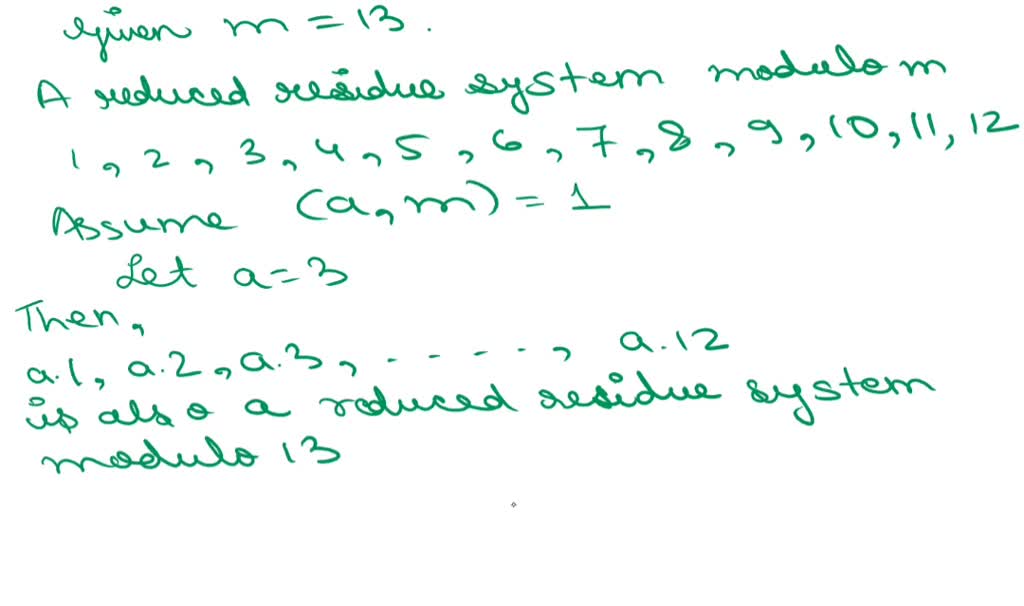 Given m = 13.
A reduced residue system modulo m
1, 2, 3, 4, 5, 6, 7, 8, 9, 10, 11, 12
Assume (a, m) = 1
Let a = 3
Then,
a.1, a.2, a.3, - - - - -, a.12
is also a reduced residue system
modulo 13